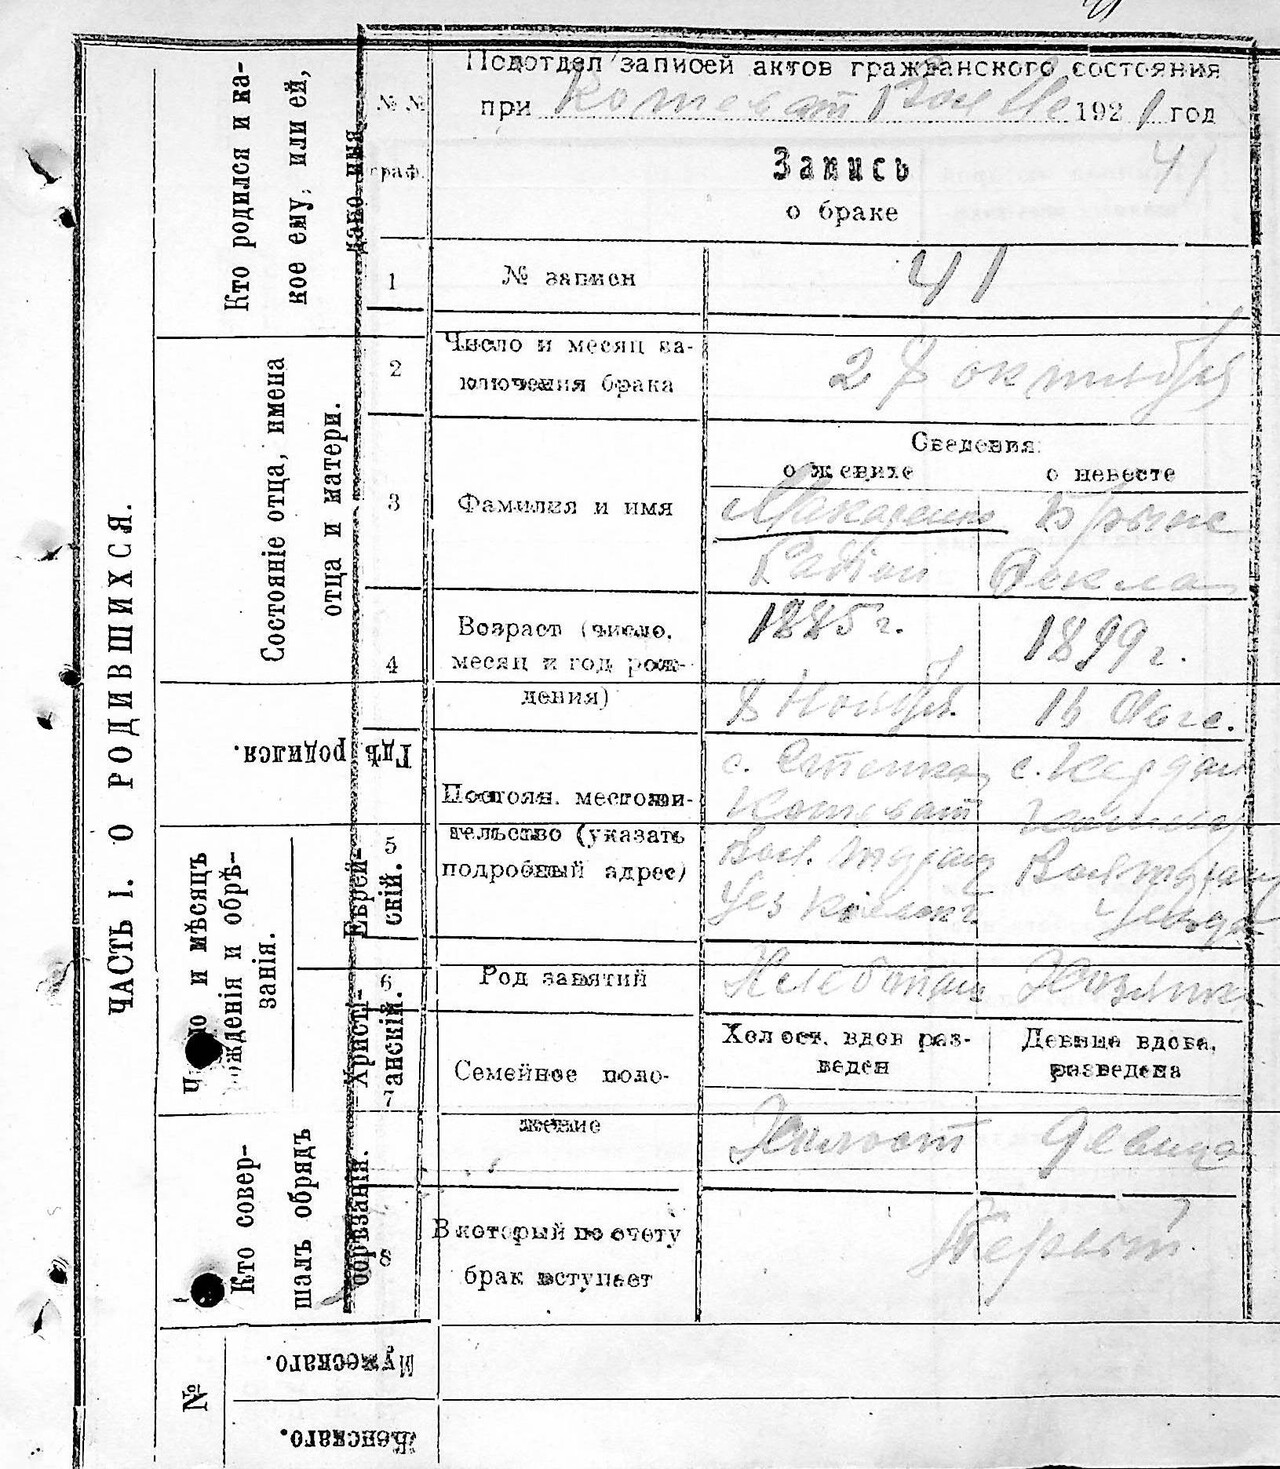 41
Подотдел записей актов гражданского состояния
при Котеват Вол 1921 год
№№ граф.
Запись
41
о браке
1
№ записи
41
2
Число и месяц за-
ключения брака
28 октября
Сведения:
о женихе
о невесте
3
Фамилия и имя
Макаренко
Родион
Фекла
4
Возраст (число,
месяц и год рож-
дения)
1885 г.
8 Ноября
1899 г.
16 Авг.
5
Постоян. местожи-
тельство (указать
подробный адрес)
с. Степка
Котеват
Вол. Таращ
Уез
с.
Вол Таращ
Уезда
6
Род занятий
Хлебопаш
Хозяйка
7
Семейное поло-
жение
Холост. вдов раз-
веден
Девица вдова,
разведена
Холост
Девица
8
В который по счету
брак вступает
Первый
ЧАСТЬ I. О РОДИВШИХСЯ.
Кто родился и ка-
кое ему, или ей,
дано имя
Состояніе отца, имена
отца и матери.
Гдѣ родился.
и мѣсяцъ
рожденія и обрѣ-
занія.
Еврей-
скій.
Христі-
анскій.
Кто совер-
шалъ обрядъ
обрѣзанія.
№
Мужескаго.
Женскаго.